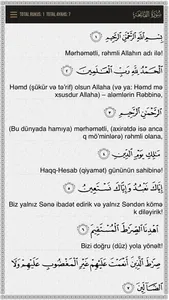 بِسْمِ اللَّهِ الرَّحْمَٰنِ الرَّحِيمِ
Mərhəmətli, rəhmli Allahın adı ilə!
الْحَمْدُ لِلَّهِ رَبِّ الْعَالَمِينَ
Həmd (şükür və tə'rif) olsun Allaha (və ya: Həmd mə
xsusdur Allaha) – aləmlərin Rəbbinə,
الرَّحْمَٰنِ الرَّحِيمِ
(Bu dünyada hamıya) mərhəmətli, (axirətdə isə anca
q mö'minlərə) rəhmli olana,
مَالِكِ يَوْمِ الدِّينِ
Haqq-Hesab (qiyamət) gününün sahibinə!
إِيَّاكَ نَعْبُدُ وَإِيَّاكَ نَسْتَعِينُ
Biz yalnız Sənə ibadət edirik və yalnız Səndən kömə
k diləyirik!
اهْدِنَا الصِّرَاطَ الْمُسْتَقِيمَ
Bizi doğru (düz) yola yönəlt!
صِرَاطَ الَّذِينَ أَنْعَمْتَ عَلَيْهِمْ غَيْرِ الْمَغْضُوبِ عَلَيْهِمْ وَلَا
الضَّالِّينَ